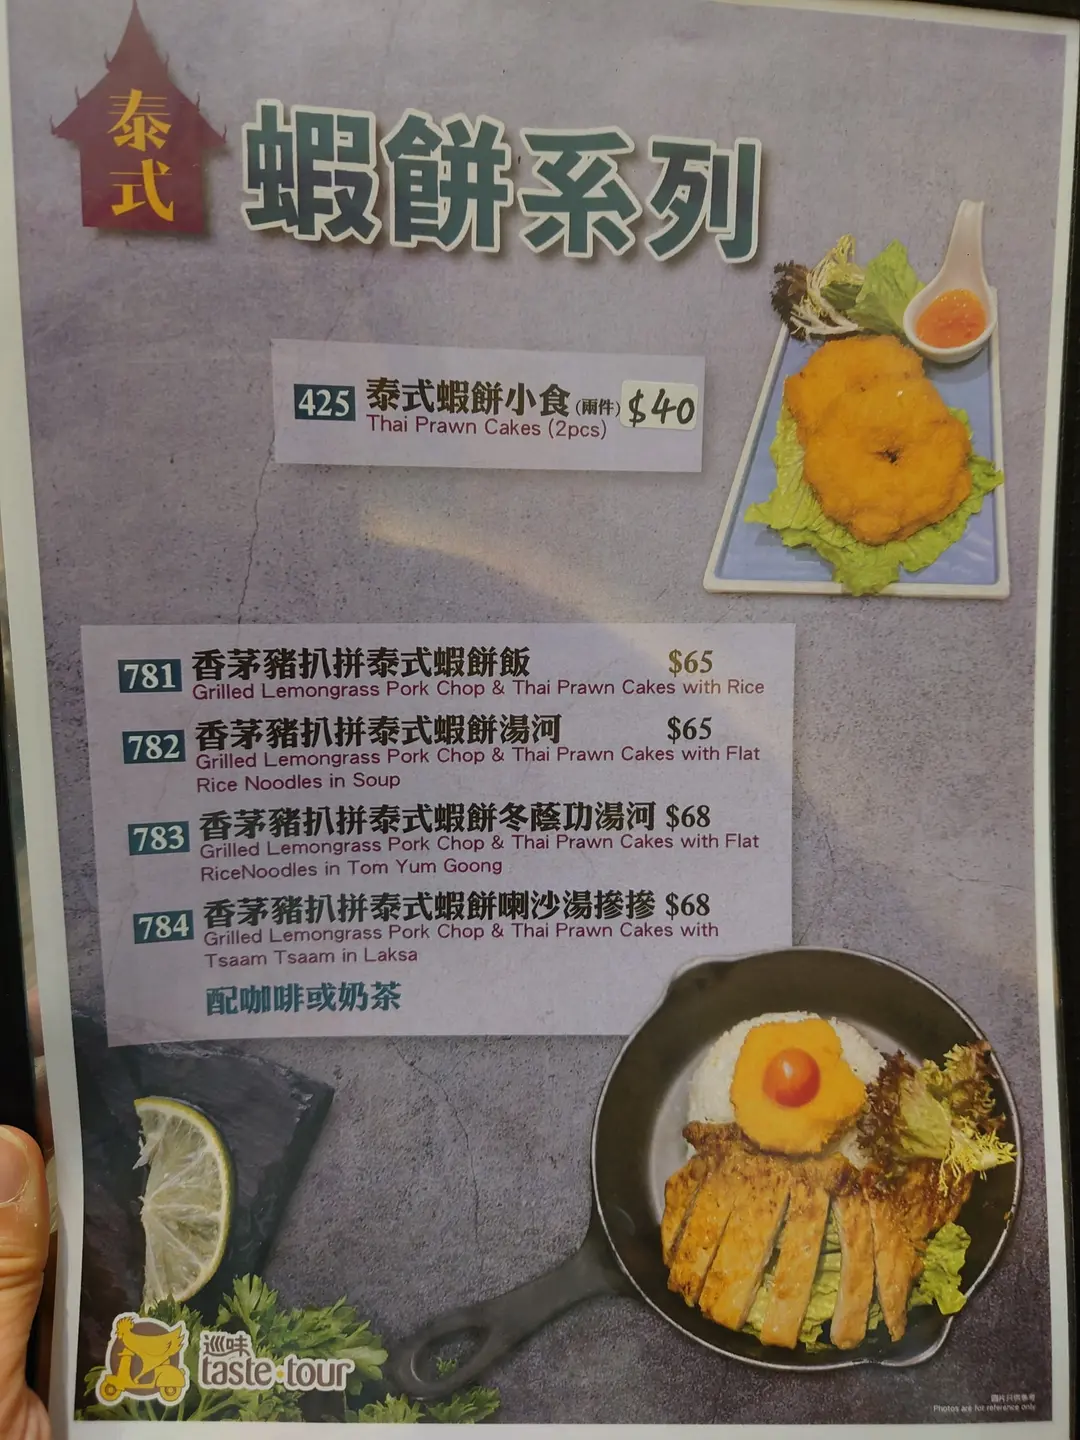 泰式
蝦餅系列
425 泰式蝦餅小食(兩件) $40
Thai Prawn Cakes (2pcs)
781 香茅豬扒拼泰式蝦餅飯 $65
Grilled Lemongrass Pork Chop & Thai Prawn Cakes with Rice
782 香茅豬扒拼泰式蝦餅湯河 $65
Grilled Lemongrass Pork Chop & Thai Prawn Cakes with Flat
Rice Noodles in Soup
783 香茅豬扒拼泰式蝦餅冬蔭功湯河 $68
Grilled Lemongrass Pork Chop & Thai Prawn Cakes with Flat
RiceNoodles in Tom Yum Goong
784 香茅豬扒拼泰式蝦餅喇沙湯摻摻 $68
Grilled Lemongrass Pork Chop & Thai Prawn Cakes with
Tsaam Tsaam in Laksa
配咖啡或奶茶
巡味
taste·tour
圖片只供參考
Photos are for reference only